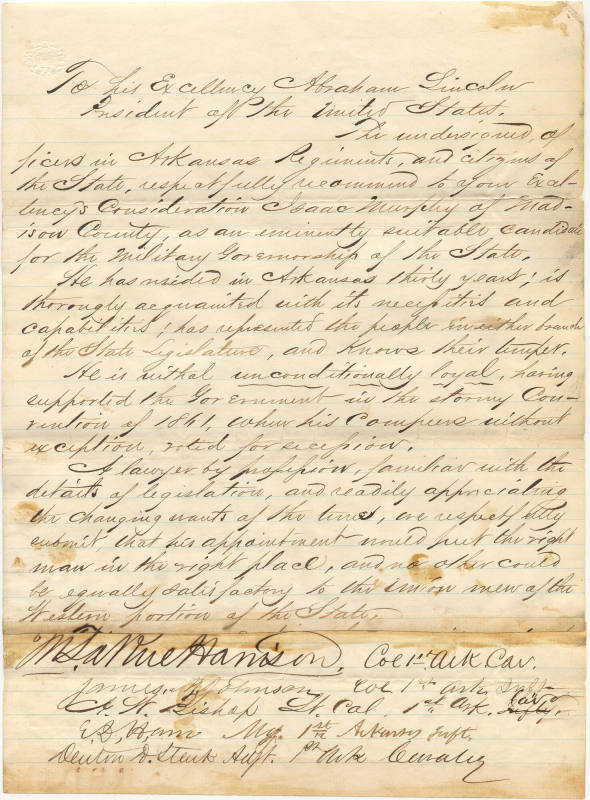 To his Excellency Abraham Lincoln
President of the United States.
The undersigned, of
ficers in Arkansas Regiments, and citizens of
the State, respectfully recommend to your Excel-
lency's Consideration Isaac Murphy of Mad-
ison County, as an eminently suitable candidate
for the Military Governorship of the State.
He has resided in Arkansas thirty years; is
thorougly acquainted with its necessities and
capabilities; has represented the people in either branch
of the State Legislature, and knows their temper.
He is withal unconditionally loyal, having
supported the Government in the stormy Con-
vention of 1861, when his compeers without
exception, voted for secession.
A lawyer by profession, familiar with the
details of legislation, and readily appreciating
the changing wants of the times, we respectfully
submit, that his appointment would put the right
man in the right place, and no other could
be equally satisfactory to the Union men of the
Western portion of the State.
M. La Rue Harrison, Col 1st Ark Cav.
James M Johnson Col 1st Ark Inft
A. W. Bishop Lt. Col. 1st Ark. Cav
E. D. Ham Maj. 1st Arkansas Inft.
Denton D. Stark Adjt. 1st Ark Cavalry